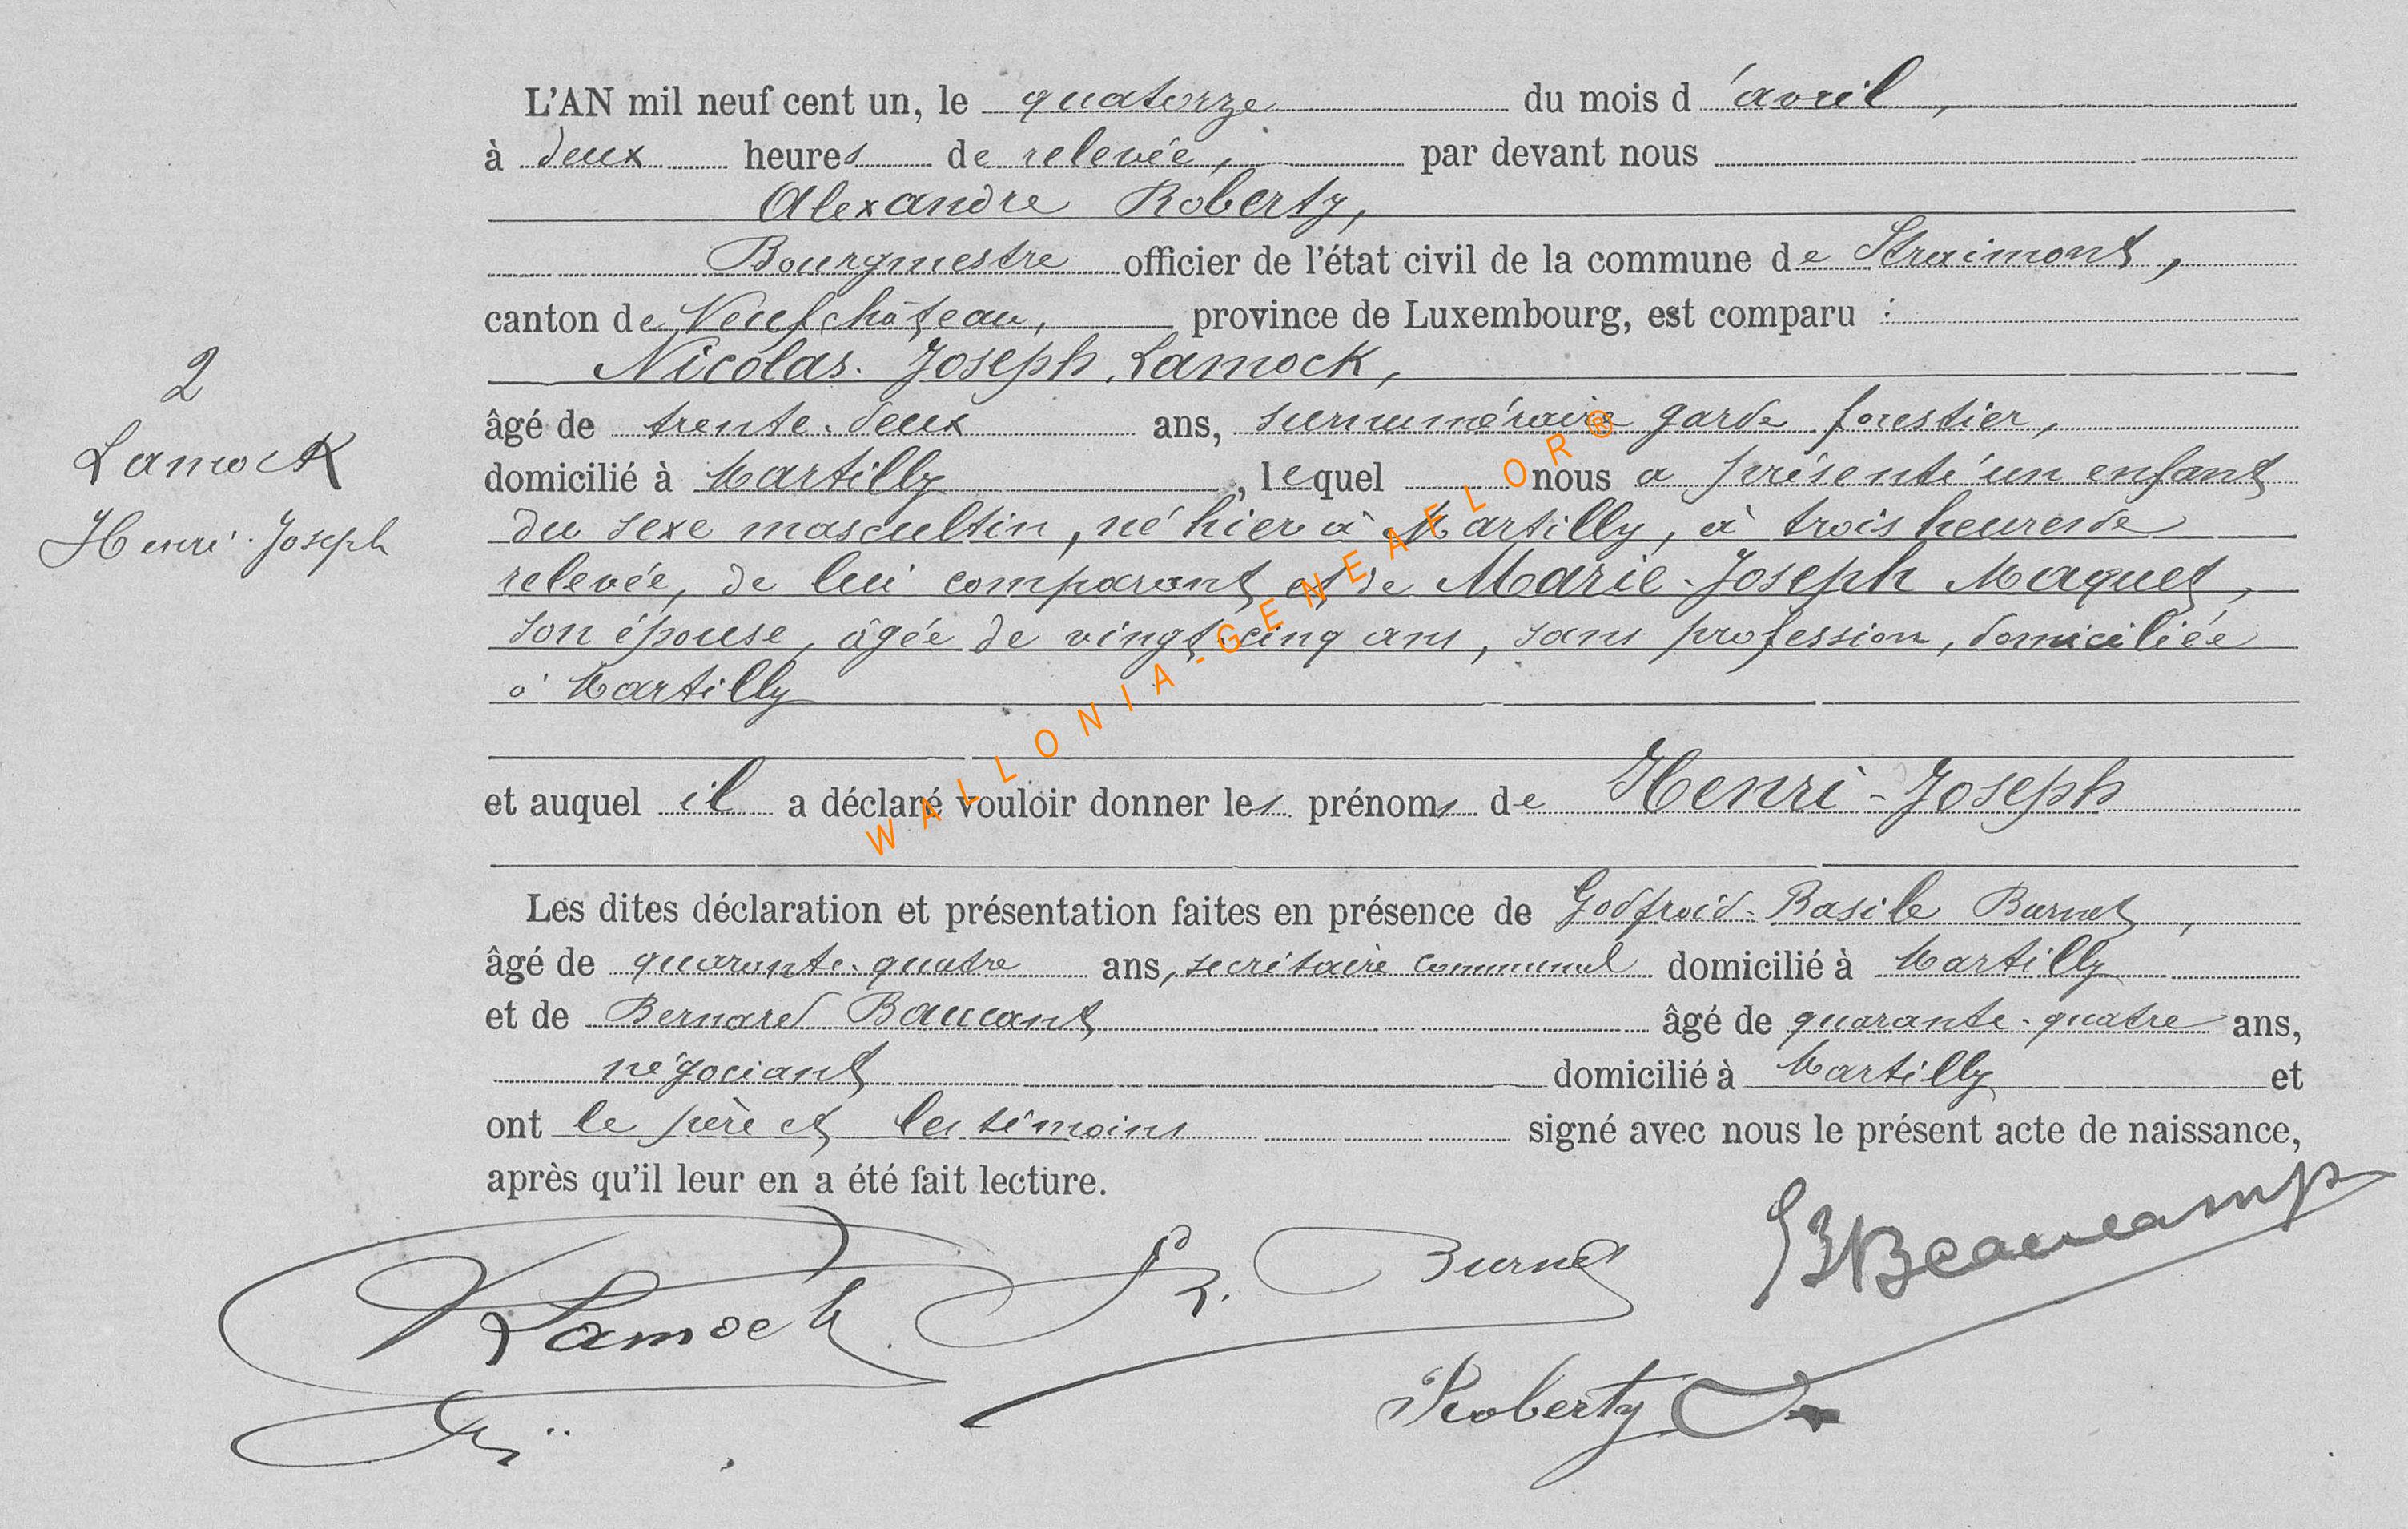 L'AN mil neuf cent un, le quatorze du mois d'avril,
à deux heures de relevée, par devant nous
Alexandre Roberty,
Bourgmestre officier de l'état civil de la commune de Straimont,
canton de Neufchâteau, province de Luxembourg, est comparu :
Nicolas-Joseph Lamock,
2
âgé de trente-deux ans, surnuméraire garde forestier,
Lamock
domicilié à Martilly, lequel nous a présenté un enfant
Henri-Joseph
du sexe mascultin, né hier à Martilly, à trois heures de
relevée, de lui comparant et de Marie-Joseph Maquet,
son épouse, âgée de vingt-cinq ans, sans profession, domiciliée
à Martilly
et auquel il a déclaré vouloir donner les prénoms de Henri-Joseph
Les dites déclaration et présentation faites en présence de Godfroid-Basile Burnet,
âgé de quarante-quatre ans, secrétaire communal domicilié à Martilly
et de Bernard Baucant âgé de quarante-quatre ans,
négociant domicilié à Martilly et
ont le père et les témoins signé avec nous le présent acte de naissance,
après qu'il leur en a été fait lecture.
Lamock Burnet Beaucamp
Roberty
WALLONIA-GENEAFLOR®